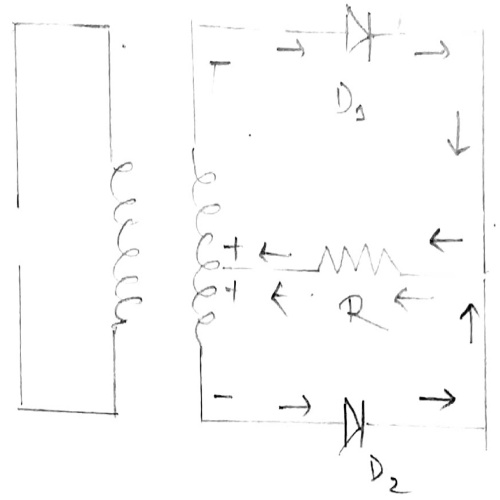 -
D1
+
+
R
-
D2